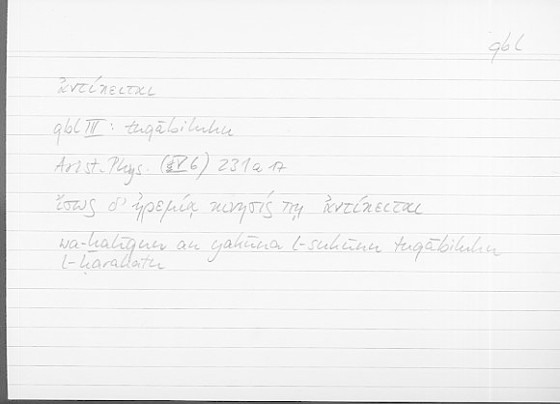 qbl
ἀντίκειται
qbl III: tuqābiluhu
Arist. Phys. (V6) 231a17
ἴσως δ' ἠρεμίᾳ κίνησίς τῃ ἀντίκειται
wa-ḫalīqun an yakūna l-sukūnu tuqābiluhu
l-ḥarakatu